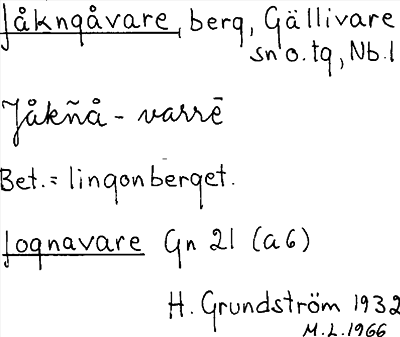 Jåkngåvare, berg, Gällivare
sn o. tg, Nb. l
Jåkñå - varrē
Bet. = lingonberget.
Jognavare Gn 21 (a6)
H. Grundström 1932
M.L. 1966